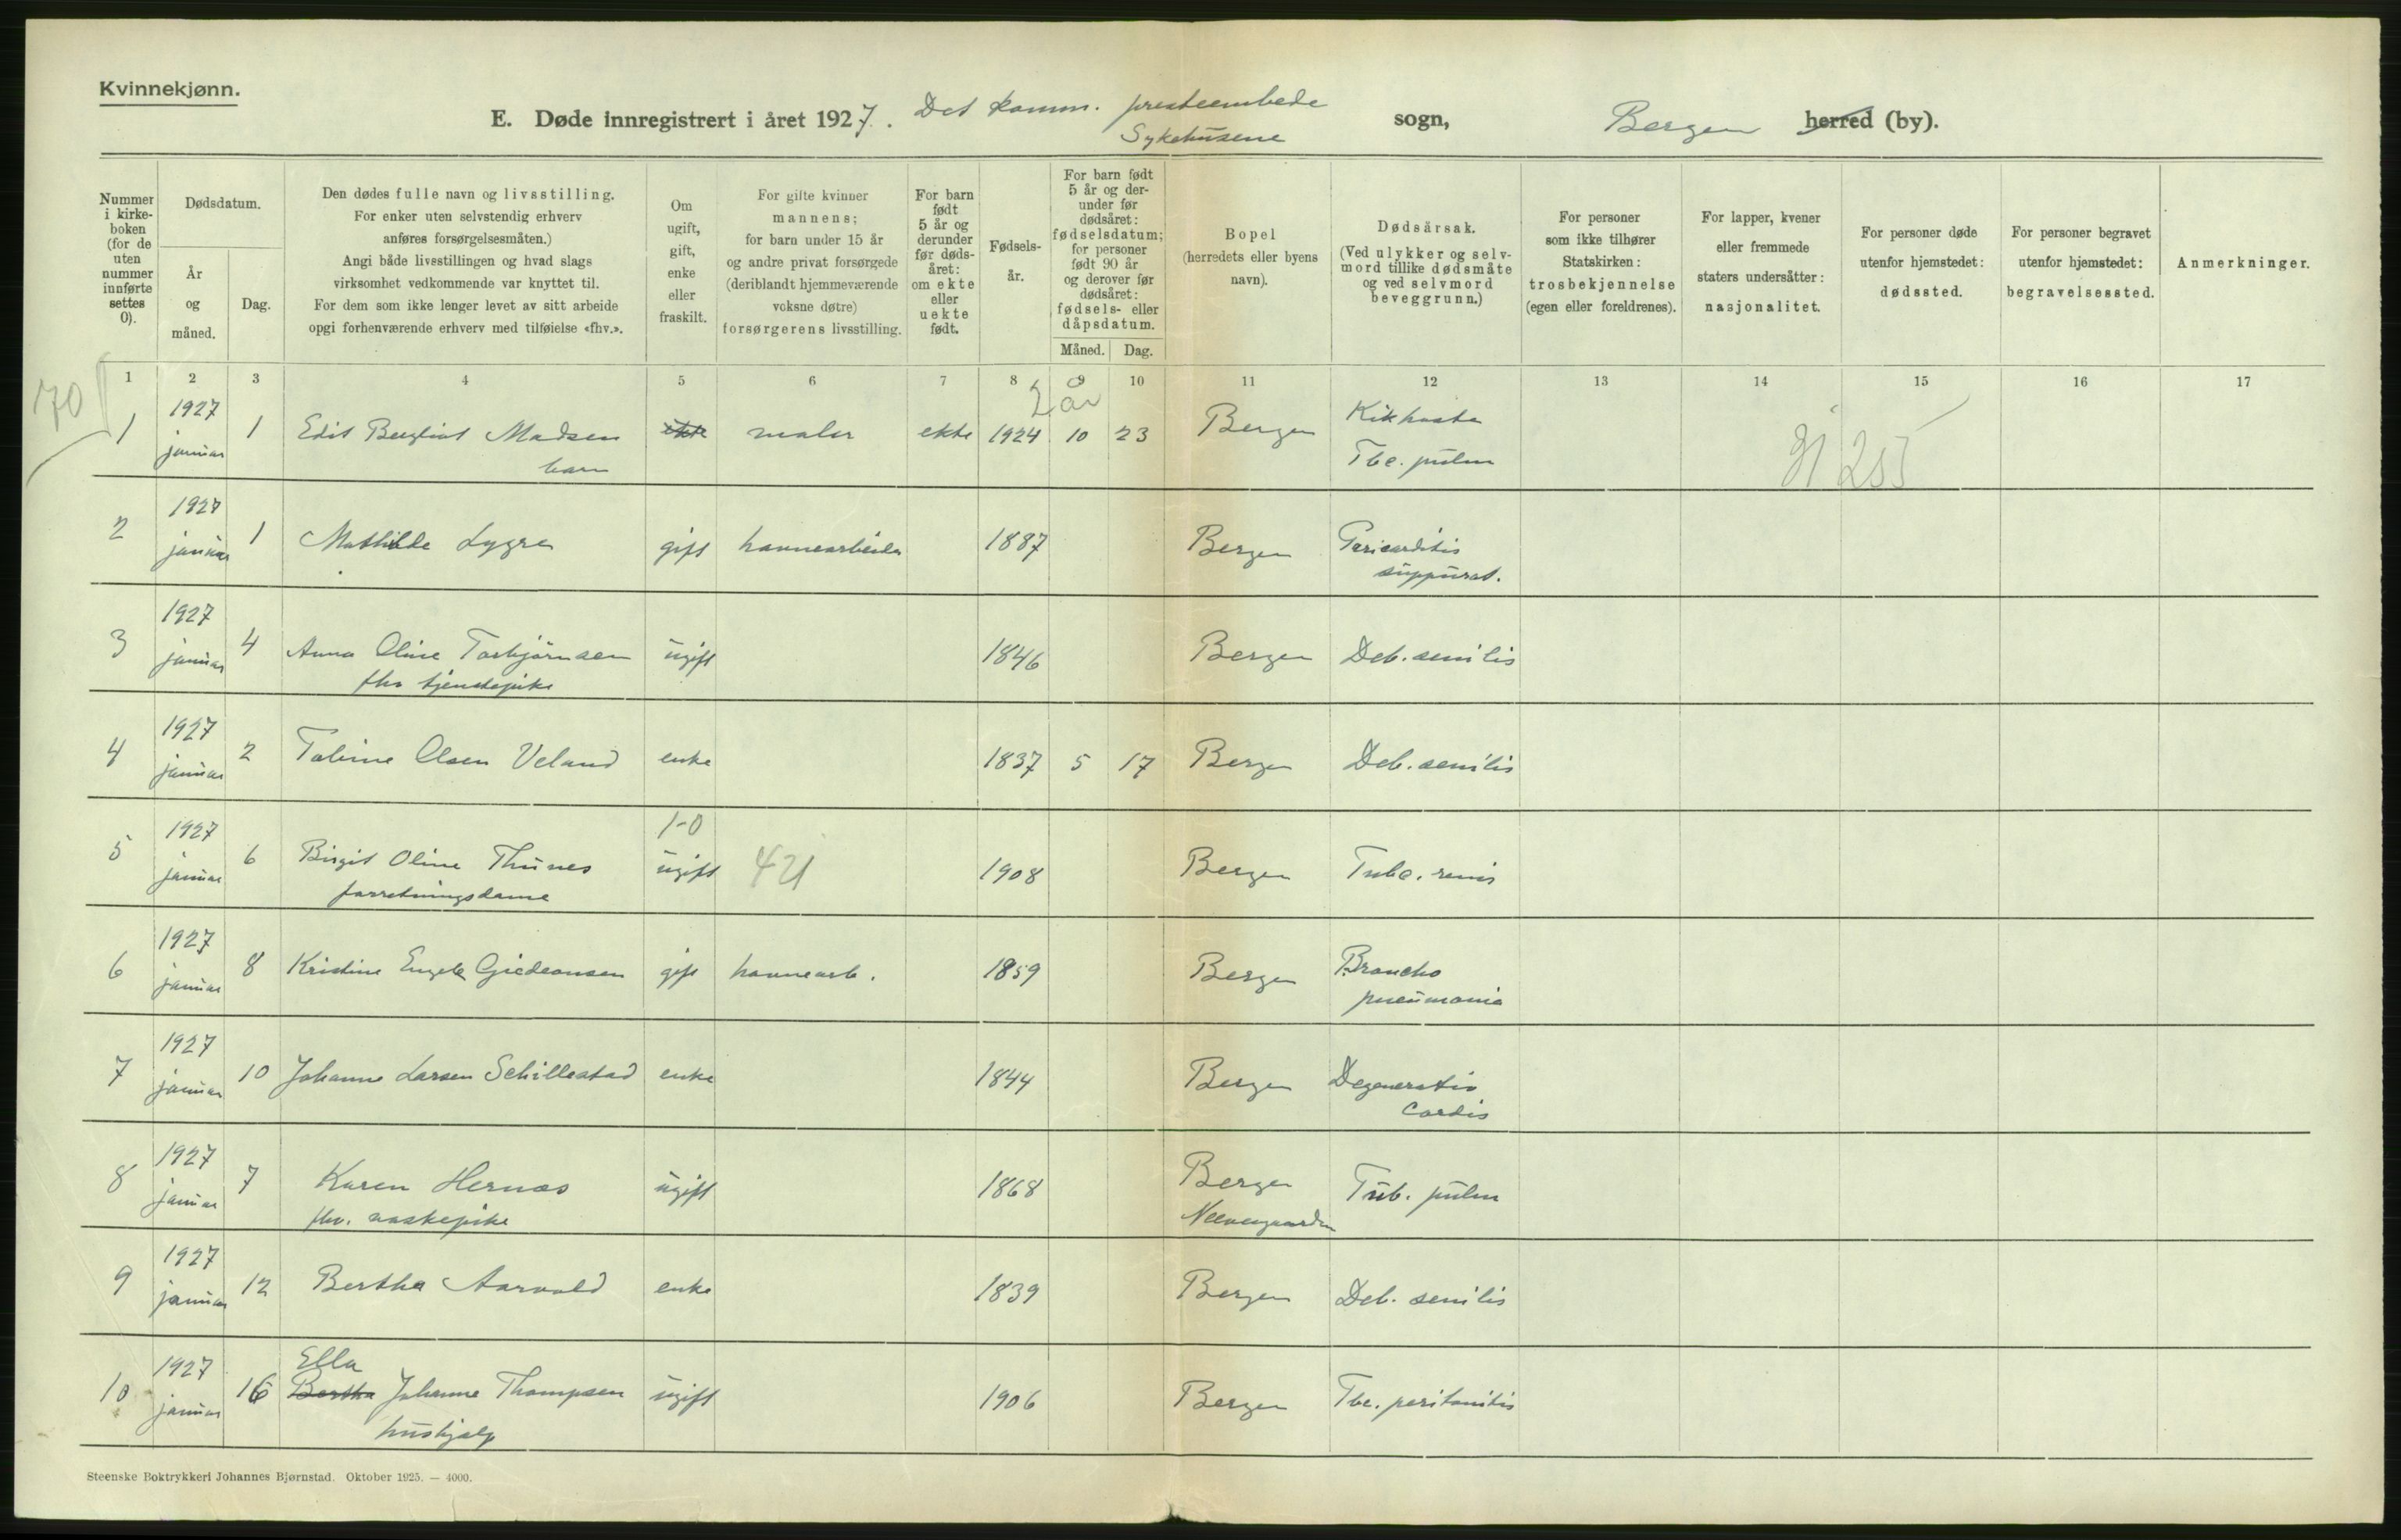 Kvinnekjønn.
E. Døde innregistrert i året 1927. Det komm. presteembede sogn, Bergen herred (by).
Sykehusene
Nummer i kirkeboken (for de uten nummer innførte settes 0).
Dødsdatum.
År og måned.
Dag.
Den dødes fulle navn og livsstilling.
For enker uten selvstendig erhverv
anføres forsørgelsesmåten.)
Angi både livsstillingen og hvad slags
virksomhet vedkommende var knyttet til.
For dem som ikke lenger levet av sitt arbeide
opgi forhenværende erhverv med tilføielse «fhv.».
Om ugift, gift, enke eller fraskilt.
For gifte kvinner
mannens;
for barn under 15 år
og andre privat forsørgede
(deriblandt hjemmeværende
voksne døtre)
forsørgerens livsstilling.
For barn født 5 år og derunder før dødsåret: om ekte eller uekte født.
Fødselsår.
For barn født 5 år og derunder før dødsåret: fødselsdatum; for personer født 90 år og derover før dødsåret: fødsels- eller dåpsdatum.
Måned. Dag.
Bopel
(herredets eller byens
navn).
Dødsårsak.
(Ved ulykker og selvmord tillike dødsmåte og ved selvmord beveggrunn.)
For personer
som ikke tilhører
Statskirken:
trosbekjennelse
(egen eller foreldrenes).
For lapper, kvener
eller fremmede
staters undersåtter:
nasjonalitet.
For personer døde
utenfor hjemstedet:
dødssted.
For personer begravet
utenfor hjemstedet:
begravelsessted.
Anmerkninger.
1 2 3 4 5 6 7 8 9 10 11 12 13 14 15 16 17
70
2 år
1 1927 januar 1 Edit Bergliot Madsen ekte maler ekte 1924 10 23 Bergen Kikhoste
barn Tbc. pulm
2 1927 januar 1 Mathilde Lygre gift havnearbeider 1887 Bergen Pericarditis
suppurat.
3 1927 januar 4 Anna Oline Torbjörnsen ugift 1846 Bergen Deb. senilis
fhv tjenestepike
4 1927 januar 2 Tobine Olsen Veland enke 1837 5 17 Bergen Deb. senilis
1-0
5 1927 januar 6 Birgit Oline Thunes ugift 421 1908 Bergen Tubc. renis
forretningsdame
6 1927 januar 8 Kristine Engel Giedeonsen gift havnearb. 1859 Bergen Broncho
pneumonia
7 1927 januar 10 Johanne Larsen Schillestad enke 1844 Bergen Degeneratio
Cordis
8 1927 januar 7 Karen Hernæs ugift 1868 Bergen Tub. pulm
fhv. vaskepike Neevengaarden
9 1927 januar 12 Bertha Aarvold enke 1839 Bergen Deb. senilis
Ella
10 1927 januar 16 Bertha Johanne Thompsen ugift 1906 Bergen Tbc. peritonitis
hushjelp
Steenske Boktrykkeri Johannes Bjørnstad. Oktober 1925. — 4000.